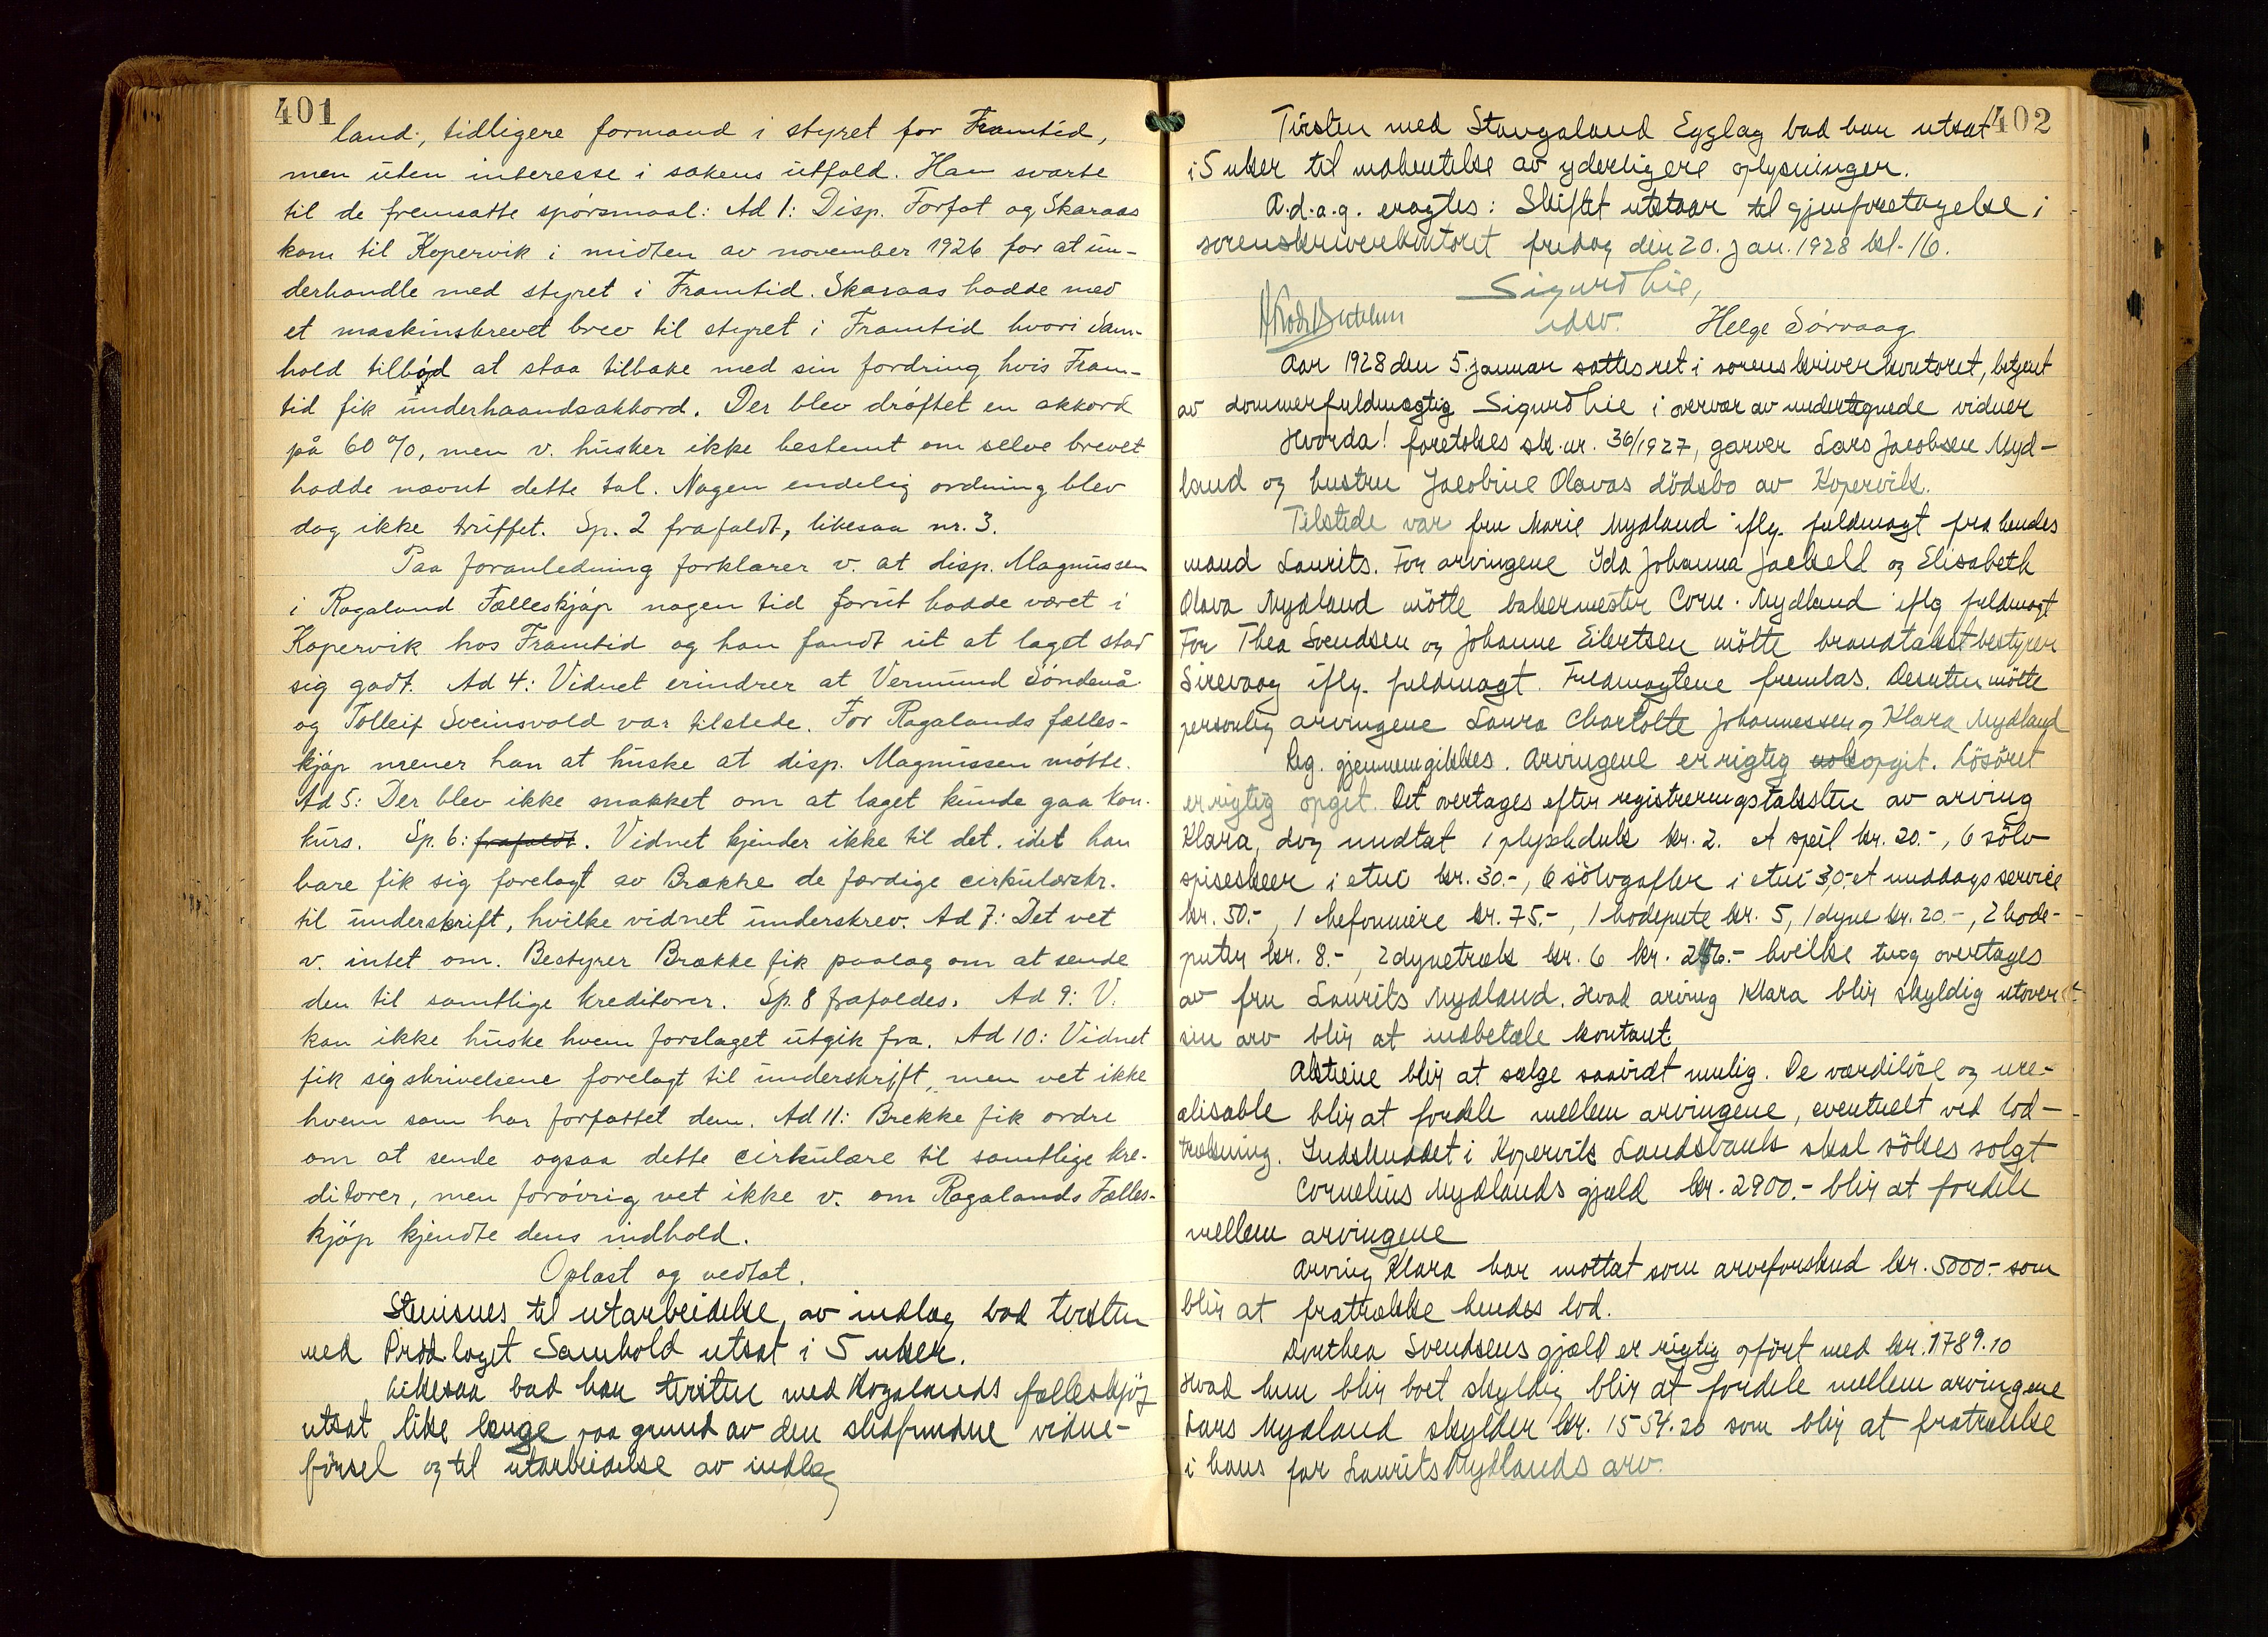 401
land, tidligere formand i styret for Framtid,
men uten interesse i sakens utfald. Han svarte
til de fremsatte spørsmaal: Ad 1: Disp. Forfot og Skaraas
kom til Kopervik i midten av november 1926 for at un-
derhandle med styret i Framtid. Skaraas hadde med
et maskinskrevet brev til styret i Framtid hvori Sam-
hold tilbød at staa tilbake med sin fordring hvis Fram-
tid fik underhaandsakkord. Der blev drøftet en akkord
på 60 %, men v. husker ikke bestemt om selve brevet
hadde nævnt dette tal. Nogen endelig ordning blev
dog ikke truffet. Sp. 2 frafaldt, likesaa nr. 3.
Paa foranledning forklarer v. at disp. Magnussen
i Rogaland Fælleskjøp nogen tid forut hadde været i
Kopervik hos Framtid og han fandt ut at laget stod
sig godt. Ad 4: Vidnet erindrer at Vermund Søndenå
og Tolleif Sveinsvold var tilstede. For Rogalands fælles-
kjøp mener han at huske at disp. Magnussen møtte.
Ad 5: Der blev ikke snakket om at laget kunde gaa kon-
kurs. Sp. 6: frafaldt. Vidnet kjender ikke til det, idet han
bare fik sig forelagt av Brække de færdige cirkulærskr.
til underskrift, hvilke vidnet underskrev. Ad 7: Det vet
v. intet om. Bestyrer Brække fik paalag om at sende
den til samtlige kreditorer. Sp. 8 frafaldes. Ad 9: V.
kan ikke huske hvem forslaget utgik fra. Ad 10: Vidnet
fik sig skrivelsene forelagt til underskrift, men vet ikke
hvem som har forfattet dem. Ad 11: Brekke fik ordre
om at sende ogsaa dette cirkulære til samtlige kre-
ditorer, men forøvrig vet ikke v. om Rogalands Fælles-
kjøp kjendte dens indhold.
Oplæst og vedtat.
Stenisnes til utarbeidelse av indlæg bad tvisten
med Prod.laget Samhold utsat i 5 uker.
Likesaa bad han tvisten med Rogalands fælleskjøp
utsat like længe paa grund av den stedfundne vidne-
førsel og til utarbeidelse av indlæg
402
Tvisten med Stangaland Egglag bad han utsat
i 5 uker til indhentelse av yderligere oplysninger.
A.d.a.g. eragtes: Skiftet utstaar til gjenforetagelse i
sorenskriverkontoret fredag den 20. jan. 1928 kl. 16.
Sigurd Lie,
edsv. Helge Sørvaag
Aar 1928 den 5. januar sattes ret i sorenskriverkontoret, betjent
av dommerfuldmægtig Sigurd Lie i overvær av undertegnede vidner
Hvorda! foretokes sk. nr. 36/1927, garver Lars Jacobsen Myd-
land og hustru Jacobine Olavas dødsbo av Kopervik.
Tilstede var fru Marie Mydland iflg. fuldmagt fra hendes
mand Laurits. For arvingene Ida Johanna Jaekell og Elisabeth
Olava Mydland møtte bakermester Corn. Mydland iflg fuldmagt
For Thea Svendsen og Johanne Eilertsen møtte brandtakstbestyrer
Sirevaag iflg. fuldmagt. Fuldmagtene fremlas. Desuten møtte
personlig arvingene Laura Charlotte Johannessen og Klara Mydland
Reg. gjennemgikkes. Arvingene er rigtig opgit. Løsøret
er rigtig opgit. Det overtages efter registreringstaksten av arving
Klara, dog undtat 1 plyschduk kr. 2. et speil kr. 20.-, 6 sølv
spiseskeer i etui kr. 30.-, 6 sølvgafler i etui 30.- et middagsservice
kr. 50.-, 1 chefoniere kr. 75.-, 1 hodepute kr. 5, 1 dyne kr. 20.-, 2 hode-
puter kr. 8.-, 2 dynetræk kr. 6 kr. 246.- hvilke ting overtages
av fru Laurits Mydland. Hvad arving Klara blir skyldig utover
sin arv blir at indbetale kontant.
Aktiene blir at sælge saavidt mulig. De værdiløse og ure-
alisable blir at fordele mellem arvingene, eventuelt ved lod-
trækning. Indskuddet i Kopervik Landsbank skal søkes solgt
Cornelius Mydlands gjæld kr. 2900.- blir at fordele
mellem arvingene
Arving Klara har mottat som arveforskud kr. 5000.- som
blir at fratrække hendes lod.
Dorthea Svendsens gjæld er rigtig opført med kr. 1789.10
Hvad hun blir boet skyldig blir at fordele mellem arvingene
Lars Mydland skylder kr. 1554.20 som blir at fratrække
i hans far Laurits Mydlands arv.